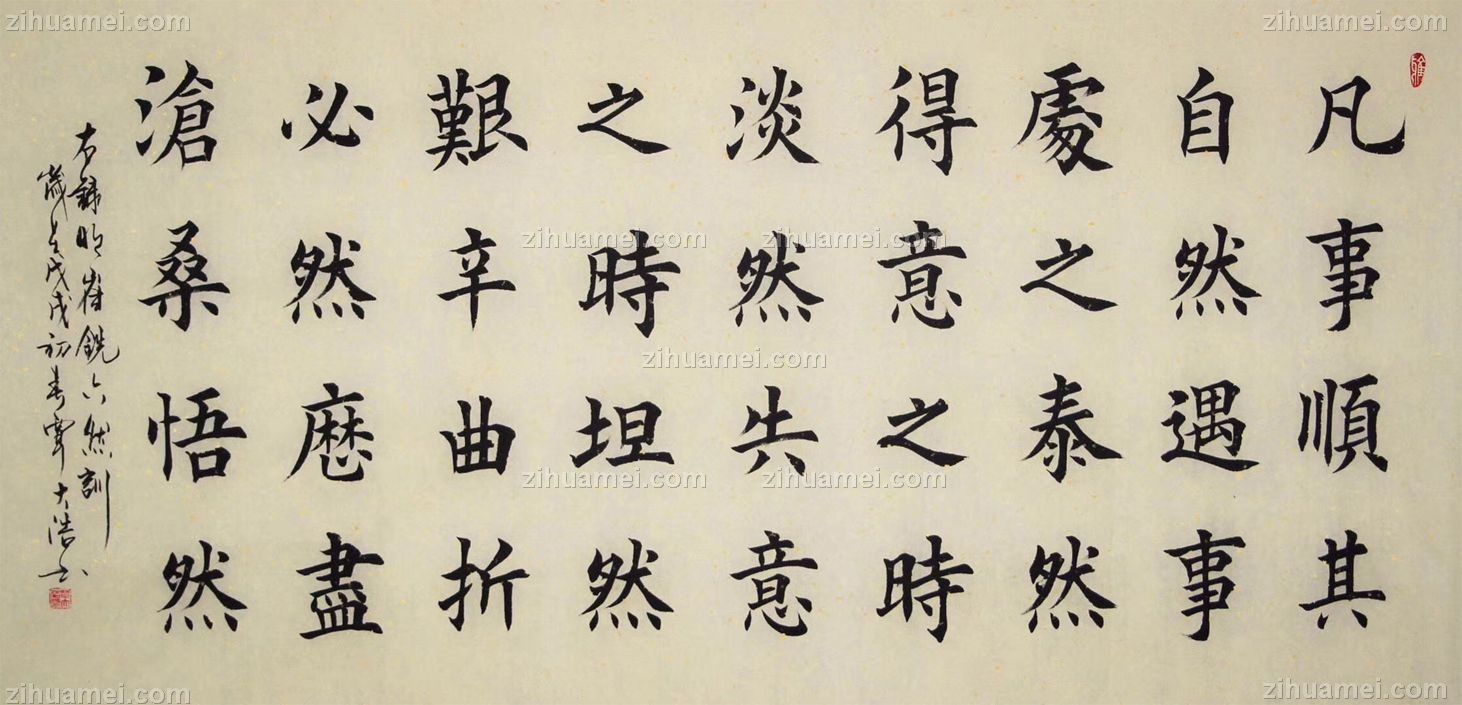 zihuamei.com
zihuamei.com
凡事順其
自然遇事
處之泰然
得意之時
淡然失意
之時坦然
艱辛曲折
必然歷盡
滄桑悟然
右錄明崔銑六然訓
歲在戊戌初春大浩書
zihuamei.com
zihuamei.com
zihuamei.com
zihuamei.com
zihuamei.com
zihuamei.com
zihuamei.com